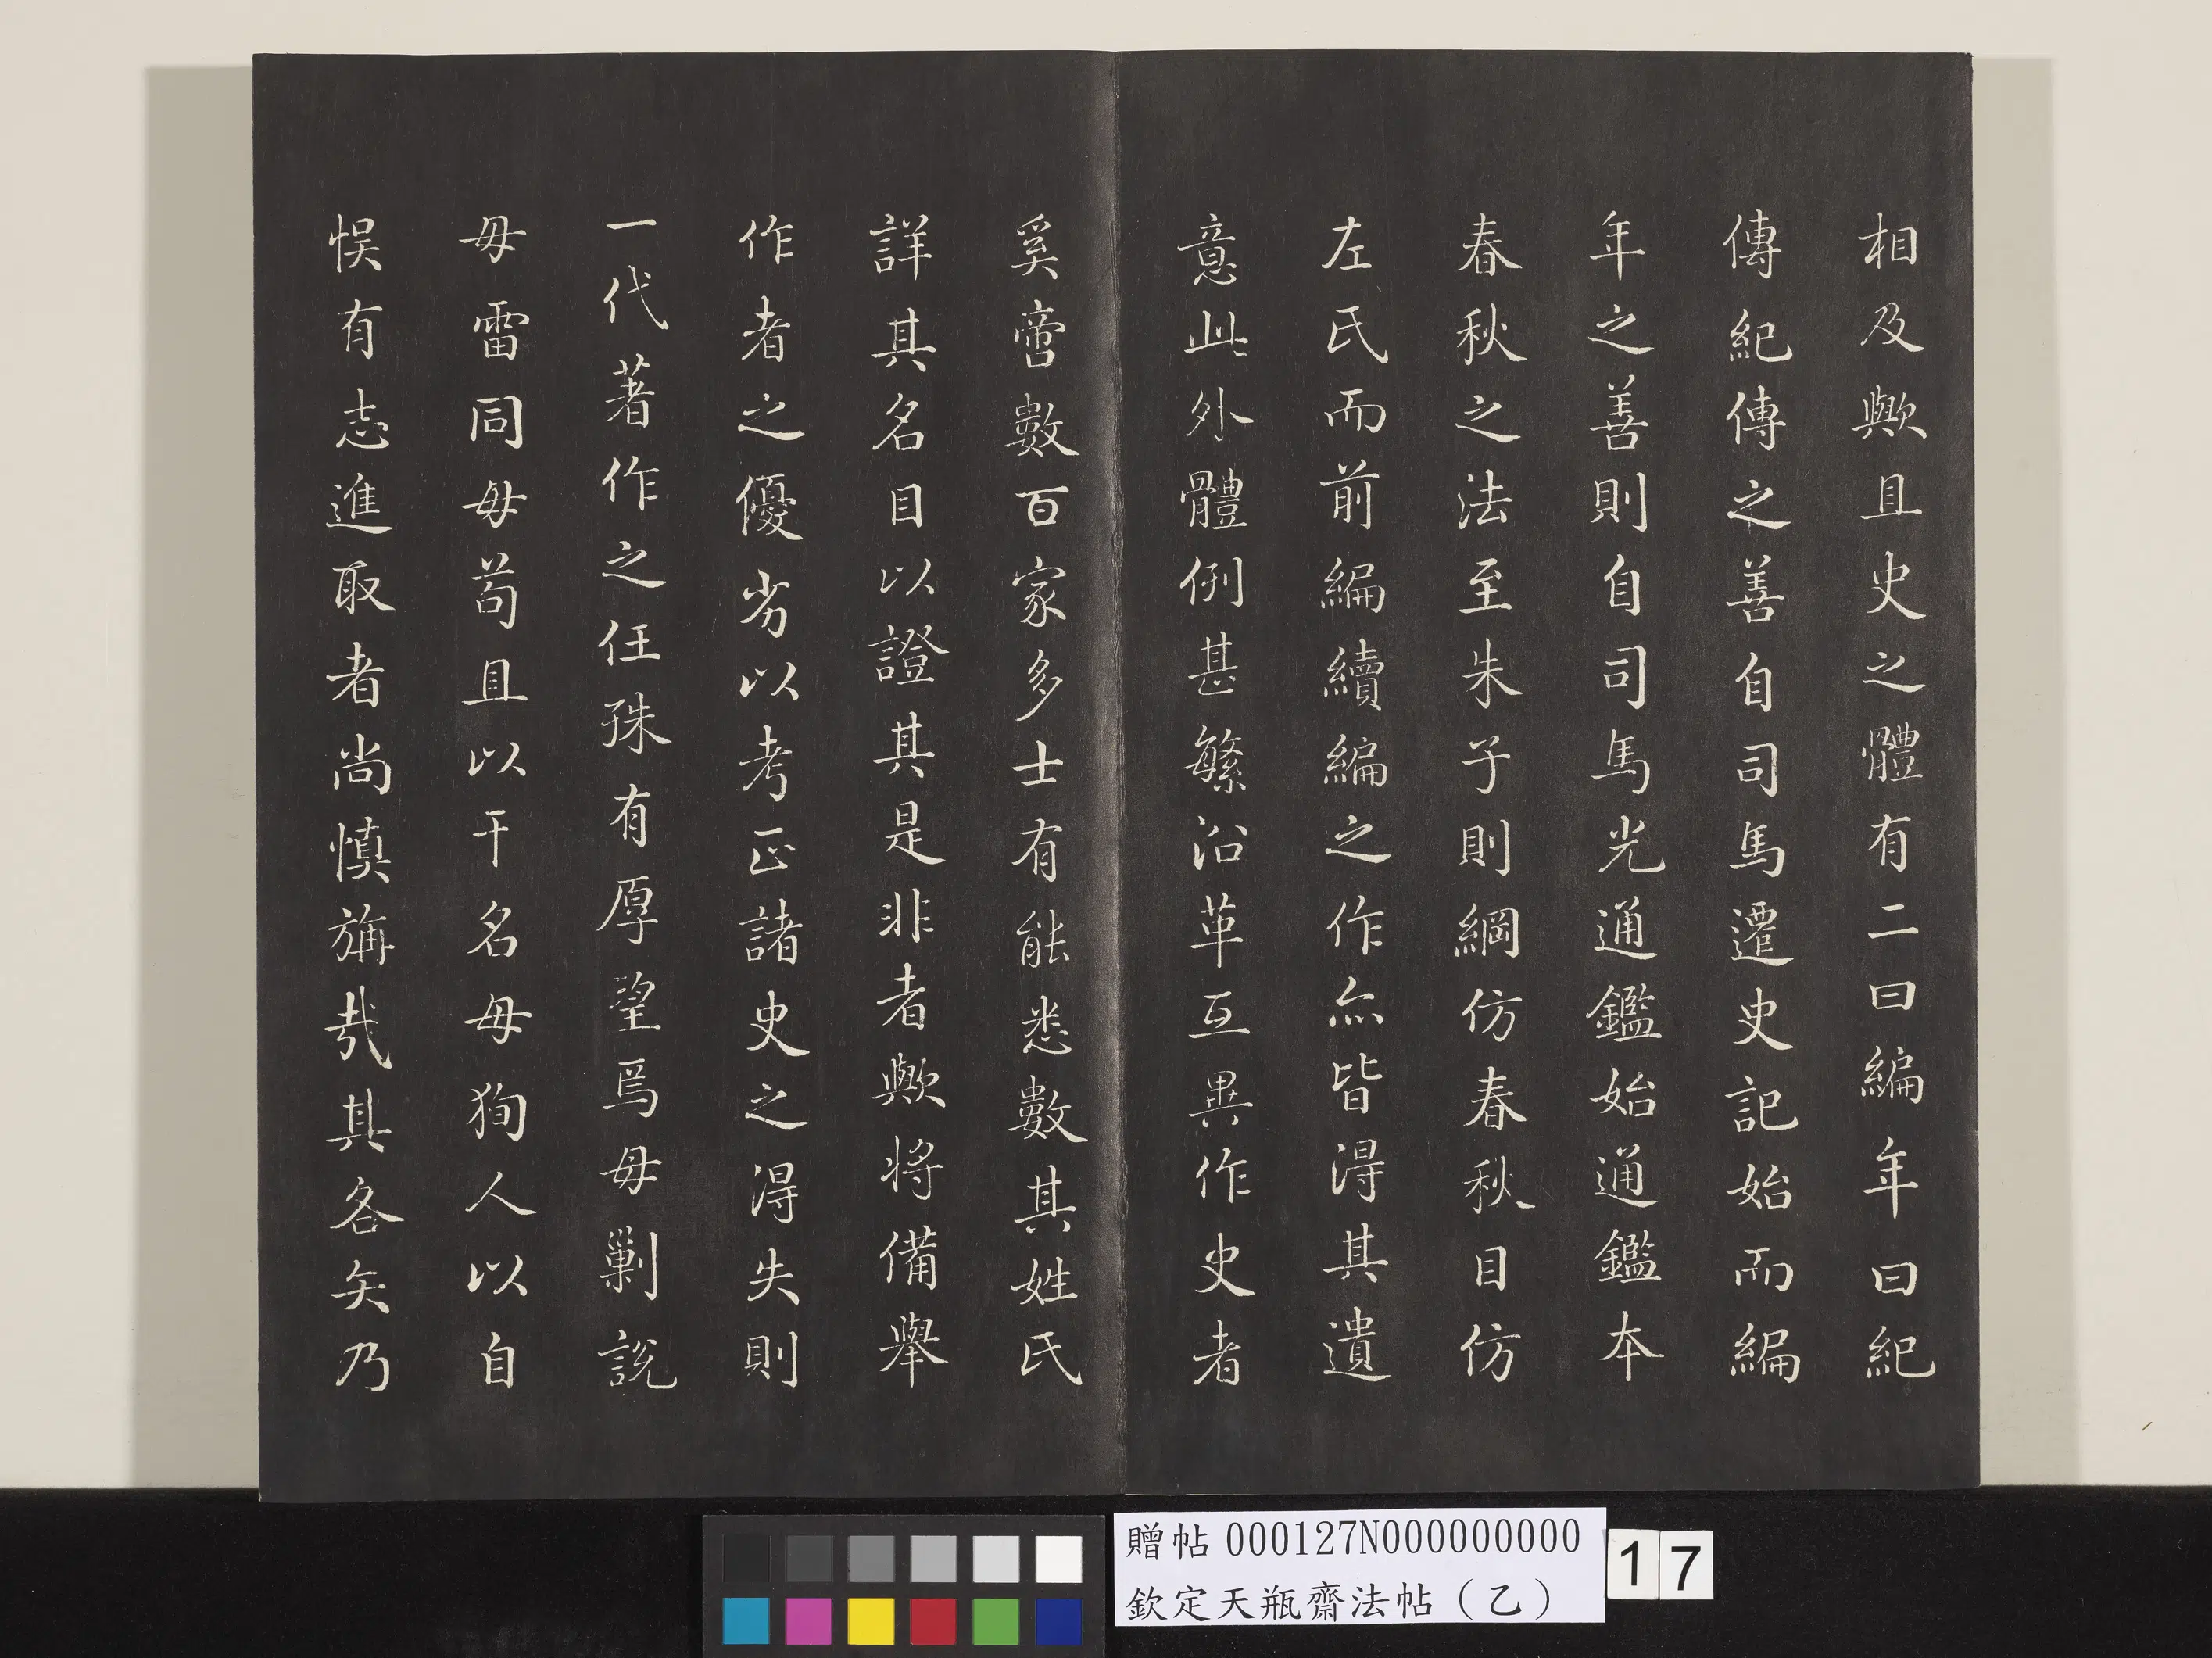 相及歟且史之體有二曰編年曰紀
傳紀傳之善自司馬遷史記始而編
年之善則自司馬光通鑑始通鑑本
春秋之法至朱子則綱仿春秋目仿
左氏而前編續編之作亦皆得其遺
意此外體例甚繁沿革互異作史者
奚啻數百家多士有能悉數其姓氏
詳其名目以證其是非者歟將備舉
作者之優劣以考正諸史之得失則
一代著作之任殊有厚望焉毋剿說
毋雷同毋苟且以干名毋狥人以自
悮有志進取者尚慎旃哉其各矢乃
贈帖 000127N000000000 17
欽定天瓶齋法帖（乙）